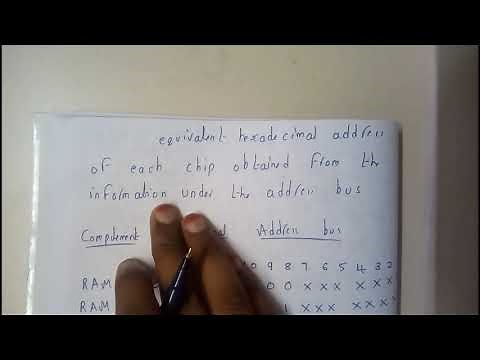 equivalent hexadecimal address
of each chip obtained from the
information under the address bus
Complement Address bus
10 9 8 7 6 5 4 3 2
RAM 0 0 x x x x x x
RAM 1 x x x x x x